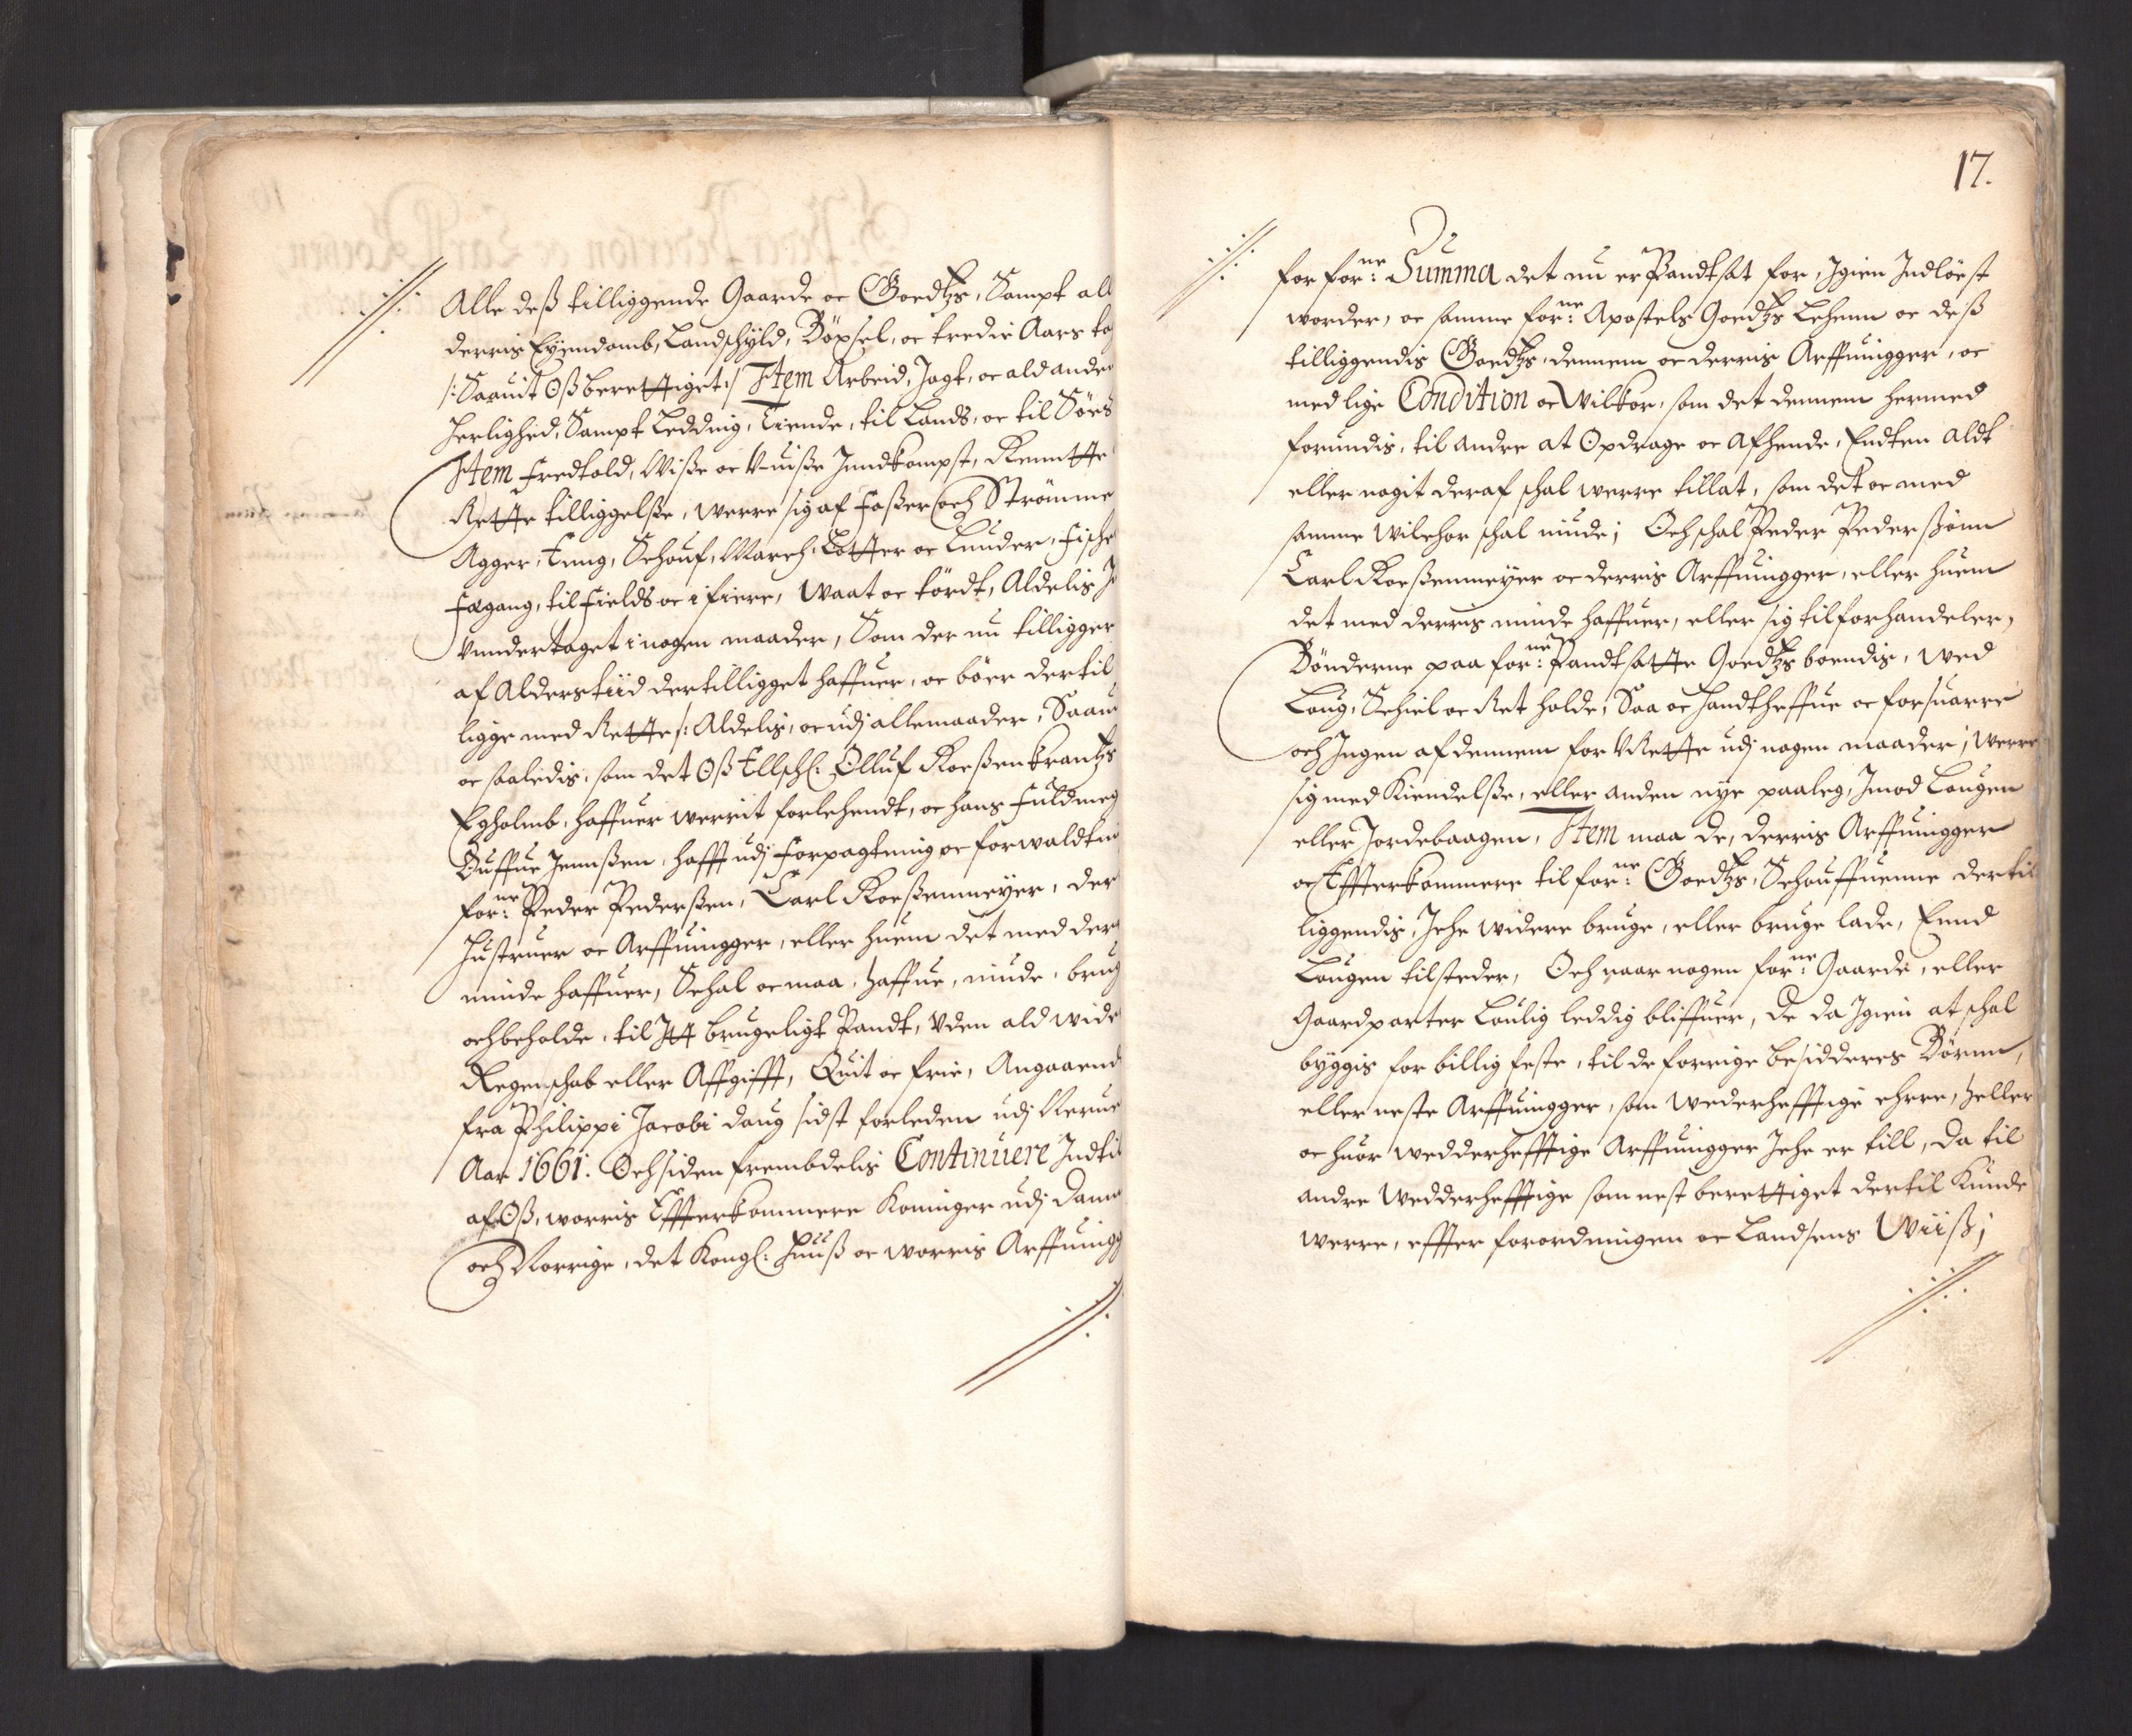 Alle deß tilliggende Gaarde oc Goedtzs, Sampt all
derris Eyendomb, Landschyld, Böxsel, oc tredie Aars
/: Saauit Oß berettiget :/ Item Arbeid, Jagt, oc ald anden
Herlighed, Sampt Ledding, Tiende, til Lands, oc til Söes
Item Fredtold, Wisse oc Vuisse Inndkompst, Renntte
Rette tilliggelsse, werre sig af Fosser och Strömme
Agger, Eung, Schouf, March, Lotter oc Lunder, Fische
Fægang, til Fields oc i fiere, Waat oc tördt, Aldelis
vundertaget i nogen maader, Som der nu tilligger
af Alderstiid dertilligget haffuer, oc böer dertil
ligge med Rette /: Aldelis, oc udj allemaader, Saau
oc saaledis, som det Oß Ellschl: Olluf Roeßenkrantzs
Egholmb, haffuer werrit forlehendt, oc hans Fuldmeg
Guffue Jennßen, hafft udj Forpagtning oc forwaldtni
for:ne Peder Pederßen, Carl Roeßenmeyer, der
Hustruer oc Arffuingger, eller huem det med derr
minde haffuer, Schal oc maa, haffue, niude, brug
och beholde, til Itt brugeligt Pandt, Uden ald wide
Regenschab eller Affgifft, Quit oc frie, Angaaend
fra Philippi Jacobi daug sidst forleden udj Nerue
Aar 1661. Och siden frembdelis Continuere Indtil
af Oß, worris Effterkommere Koninger udj Danm
och Norrige, det Kongl: Huuß oc worris Arffuingg
17.
for for:ne Summa det nu er Pandtsat for, Igien Indlöest
worder, oc samme for:ne Apostels Goedtzs Lehenn oc deß
tilliggendis Goedtzs, dennem oc derris Arffuingger, oc
med lige Condition oc Wilkor, som det dennem hermed
forundis, til andre at Opdrage oc Afhende, Endten aldt
eller nogit deraf schal werre tillat, som det oc med
samme wilchor schal niude; Och schal Peder Pederßönn
Carl Roeßenmeyer oc derris Arffuingger, eller huem
det med derris minde haffuer, eller sig tilforhandeler,
Bönderne paa for:ne Pandtsatte Goedtzs boendis, wed
Loug, Schiel oc Ret holde, Saa oc handtheffue oc forsuarre
och Ingen af dennem for VRette udj nogen maader; werre
sig med Kiendelsße, eller anden nye paaleg, Imod Lougen
eller Jordebaagen, Item maa de, derris Arffuingger
oc Effterkommere til for:ne Goedtzs, Schouffuenne dertil
liggendis, Iche widere bruge, eller bruge lade, Ennd
Lougen tilsteder, Och naar nogen for:ne Gaarde, eller
Gaardparter Loulig leddig bliffuer, De da Igien at schal
byggis for billig feste, til de forrige besidderes Börnn,
eller neste Arffuingger, som wederhefftige ehrre, heller
oc huor wedderhefftige Arffuingger Iche er till, da til
andre Wedderhefftige som nest berettiget dertil kunde
werre, effter forordningen oc Landsens Wiiß;